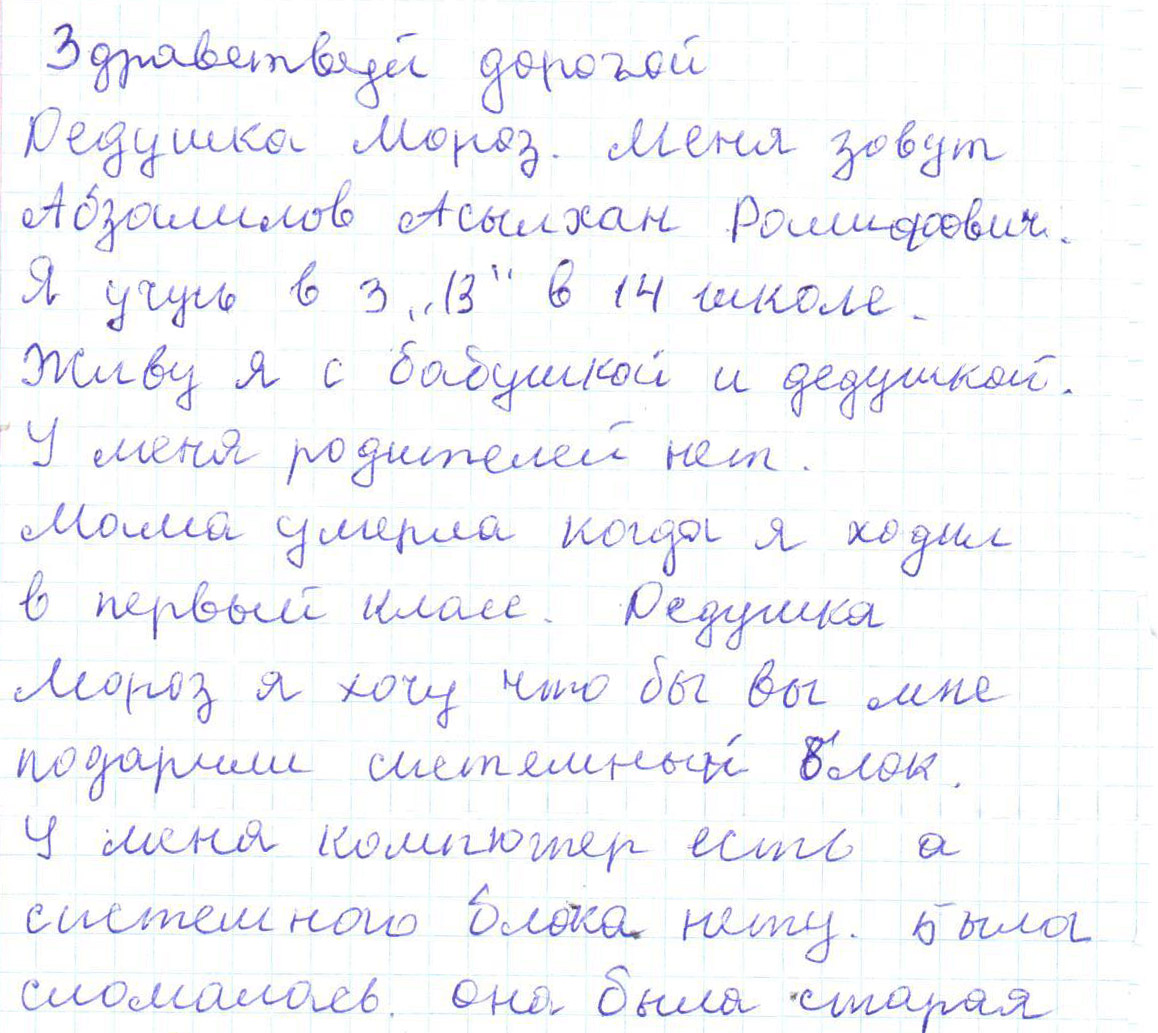 Здравствуй дорогой
Дедушка Мороз. Меня зовут
Абзамилов Асылхан Рамирович.
Я учусь в 3 „В" в 14 школе.
Живу я с бабушкой и дедушкой.
У меня родителей нет.
Мама умерла когда я ходил
в первый класс. Дедушка
Мороз я хочу что бы вы мне
подарили системный блок.
У меня компютер есть а
системного блока нету. Была
сломалась. она была старая